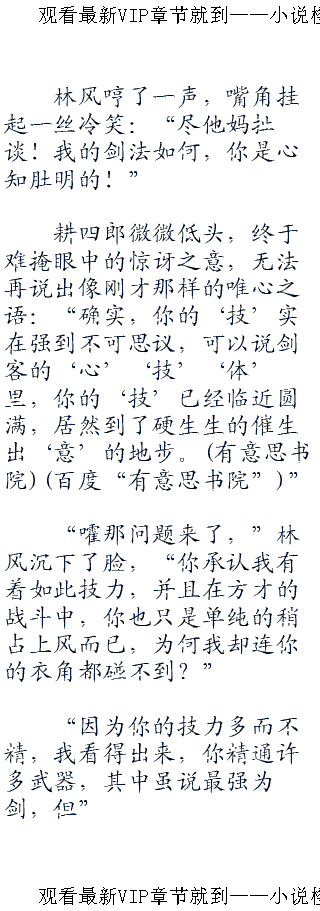 观看最新VIP章节就到——小说
林风哼了一声，嘴角挂
起一丝冷笑：“尽他妈扯
谈！我的剑法如何，你是心
知肚明的！”
耕四郎微微低头，终于
难掩眼中的惊讶之意，无法
再说出像刚才那样的唯心之
语：“确实，你的‘技’实
在强到不可思议，可以说剑
客的‘心’‘技’‘体’
里，你的‘技’已经临近圆
满，居然到了硬生生的催生
出‘意’的地步。(有意思书
院)(百度“有意思书院”)”
“嚯那问题来了，”林
风沉下了脸，“你承认我有
着如此技力，并且在方才的
战斗中，你也只是单纯的稍
占上风而已，为何我却连你
的衣角都碰不到？”
“因为你的技力多而不
精，我看得出来，你精通许
多武器，其中虽说最强为
剑，但”
观看最新VIP章节就到——小说